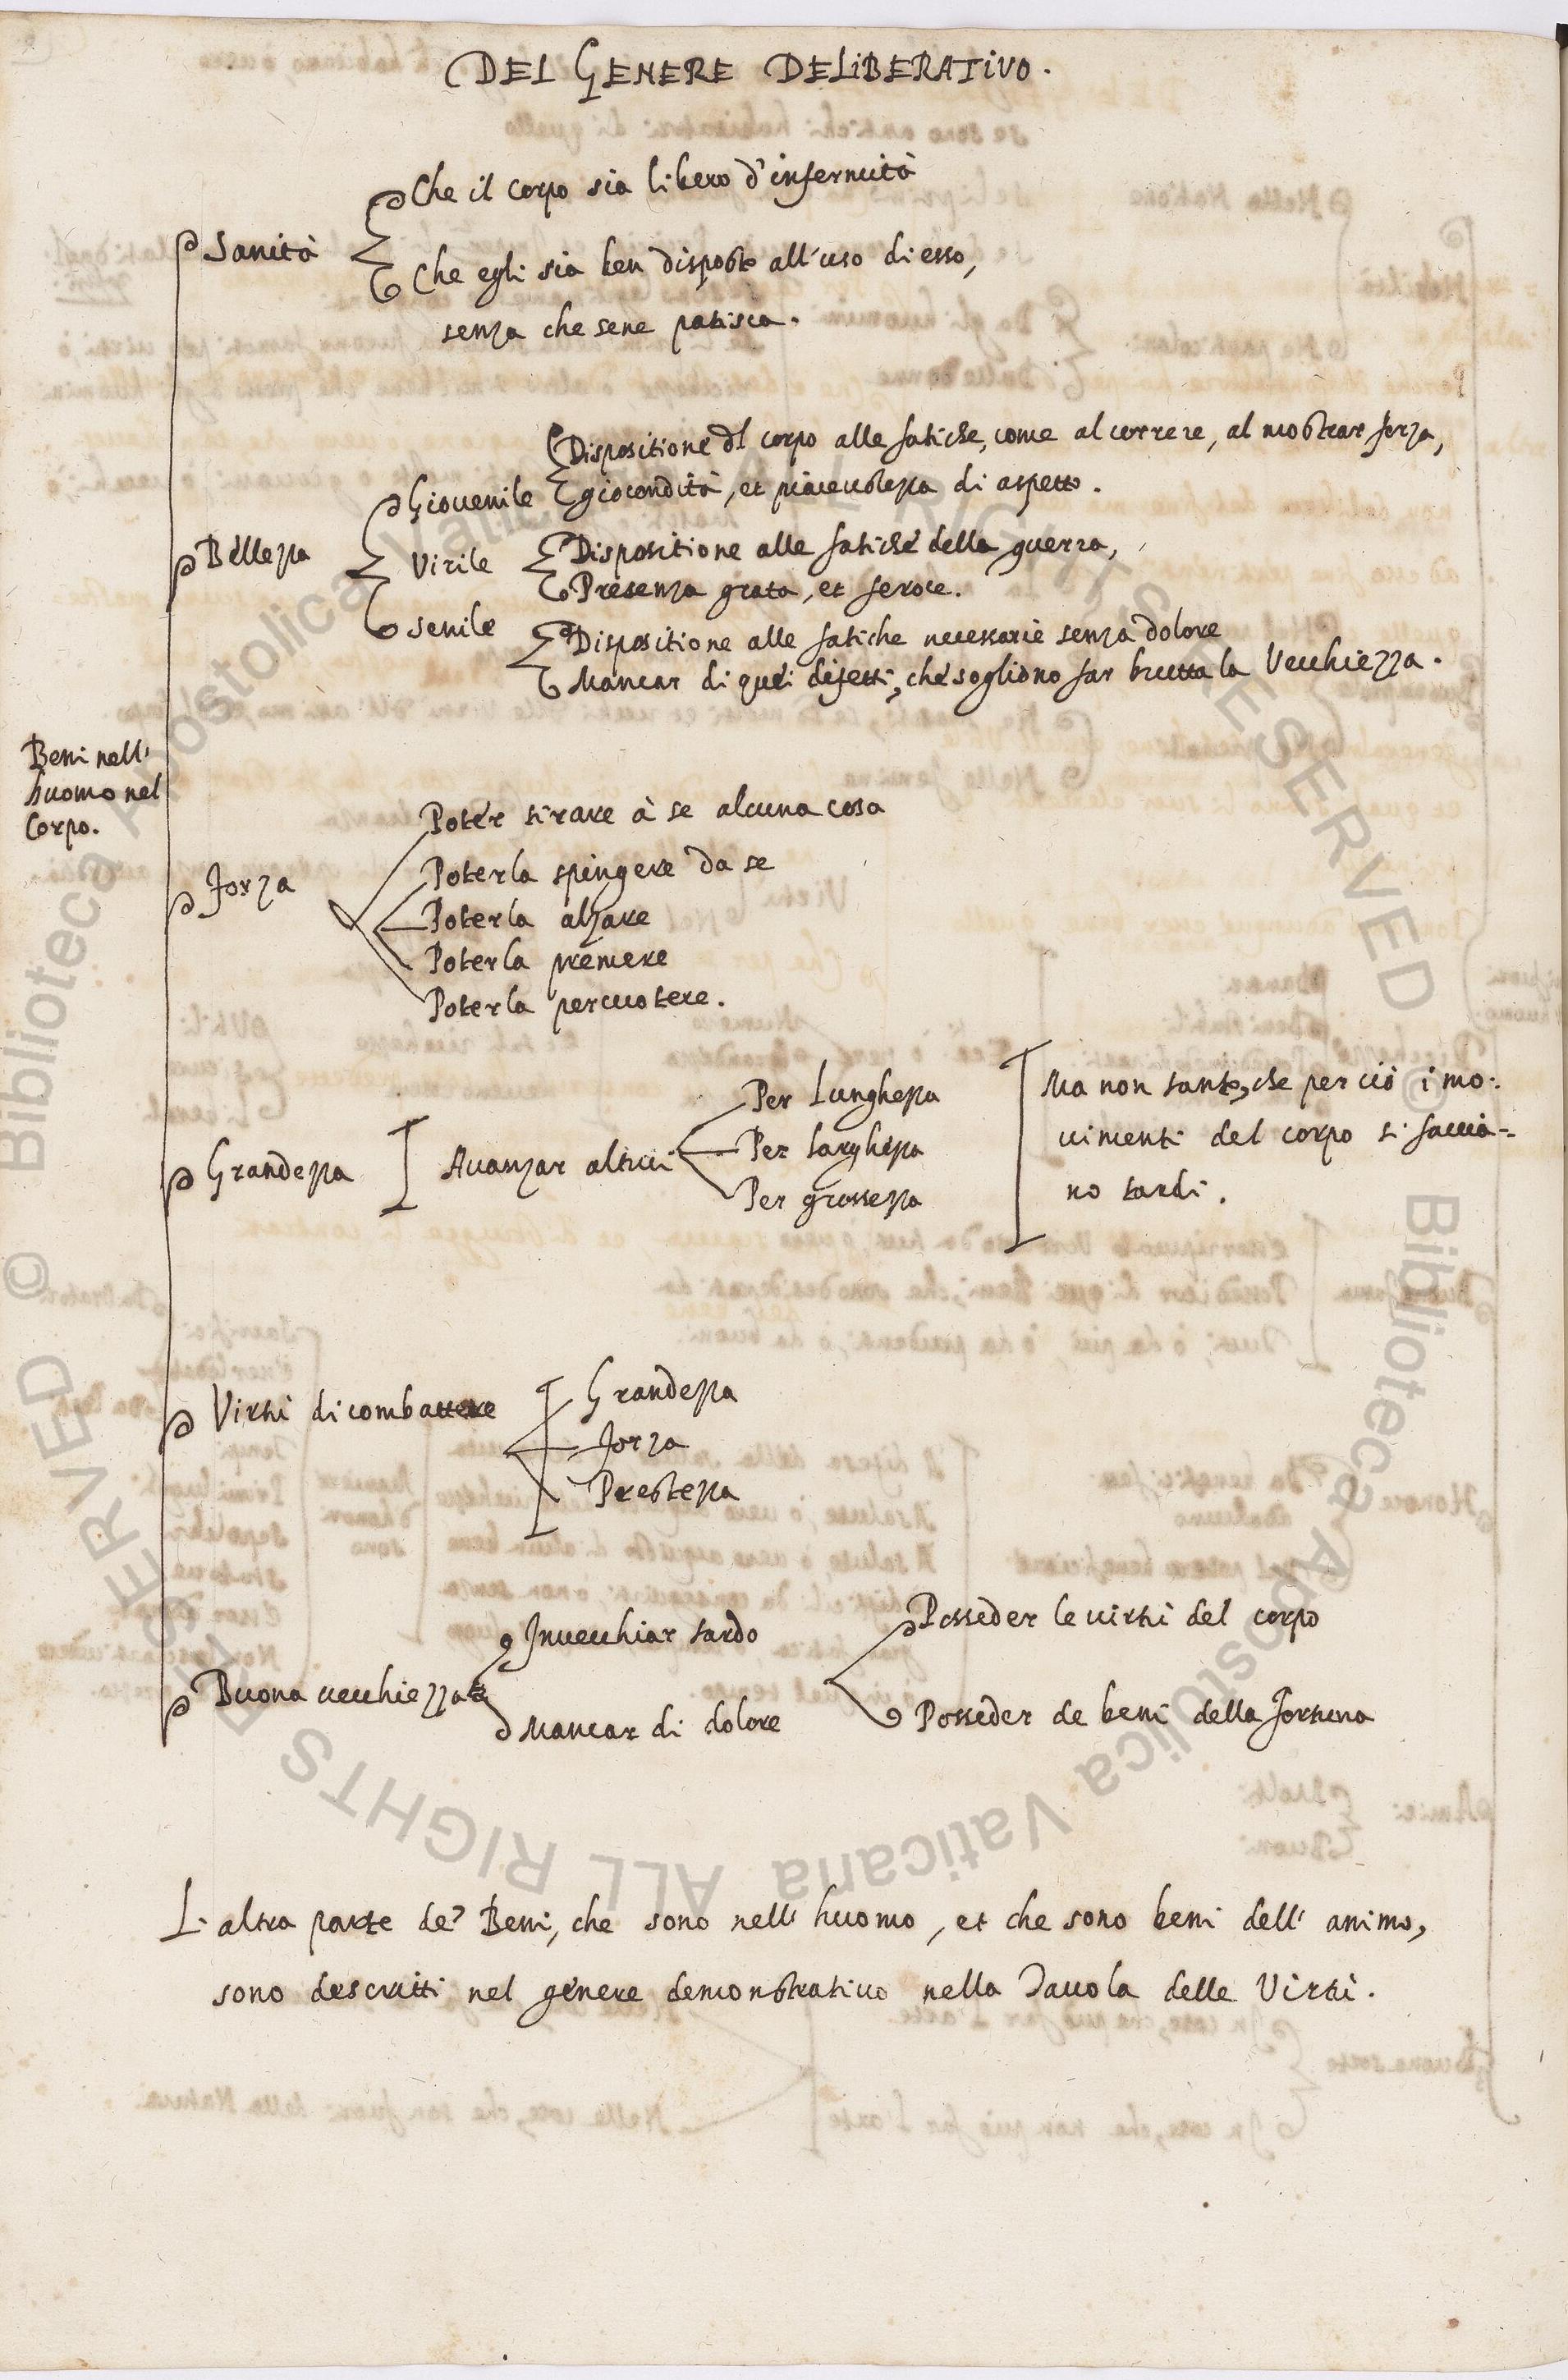 DEL GENERE DELIBERATIVO.
Che il corpo sia libero d'infermità
Sanità
Che egli sia ben disposto all'uso di esso,
senza che sene patisca.
Dispositione dl corpo alle fatiche, come al correre, al mostrar forza,
Giovenile
giocondità, et piacevolezza di aspetto.
Bellezza
Virile
Dispositione alle fatiche della guerra,
Presenza grata, et feroce.
senile
Dispositione alle fatiche necessarie senza dolore
Mancar di quei difetti, che sogliono far brutta la Vecchiezza.
Beni nell'
huomo nel
Corpo.
Poter tirare à se alcuna cosa
Poterla spingere da se
Forza
Poterla alzare
Poterla premere
Poterla percuotere.
Per Lunghezza
Grandezza
Avanzar altrui
Per larghezza
Per grossezza
Ma non tanto, che per ciò i mo-
vimenti del corpo si faccia-
no tardi.
Grandezza
Virtù di combattere
Forza
Prestezza
Invecchiar tardo
Posseder le virtù del corpo
Buona vecchiezza
Mancar di dolore
Posseder de beni della Fortuna
L'altra parte de' Beni, che sono nell'huomo, et che sono beni dell'animo,
sono descritti nel genere demonstrativo nella Tavola delle Virtù.
© Biblioteca Apostolica Vaticana ALL RIGHTS RESERVED
© Biblioteca Apostolica Vaticana ALL RIGHTS RESERVED